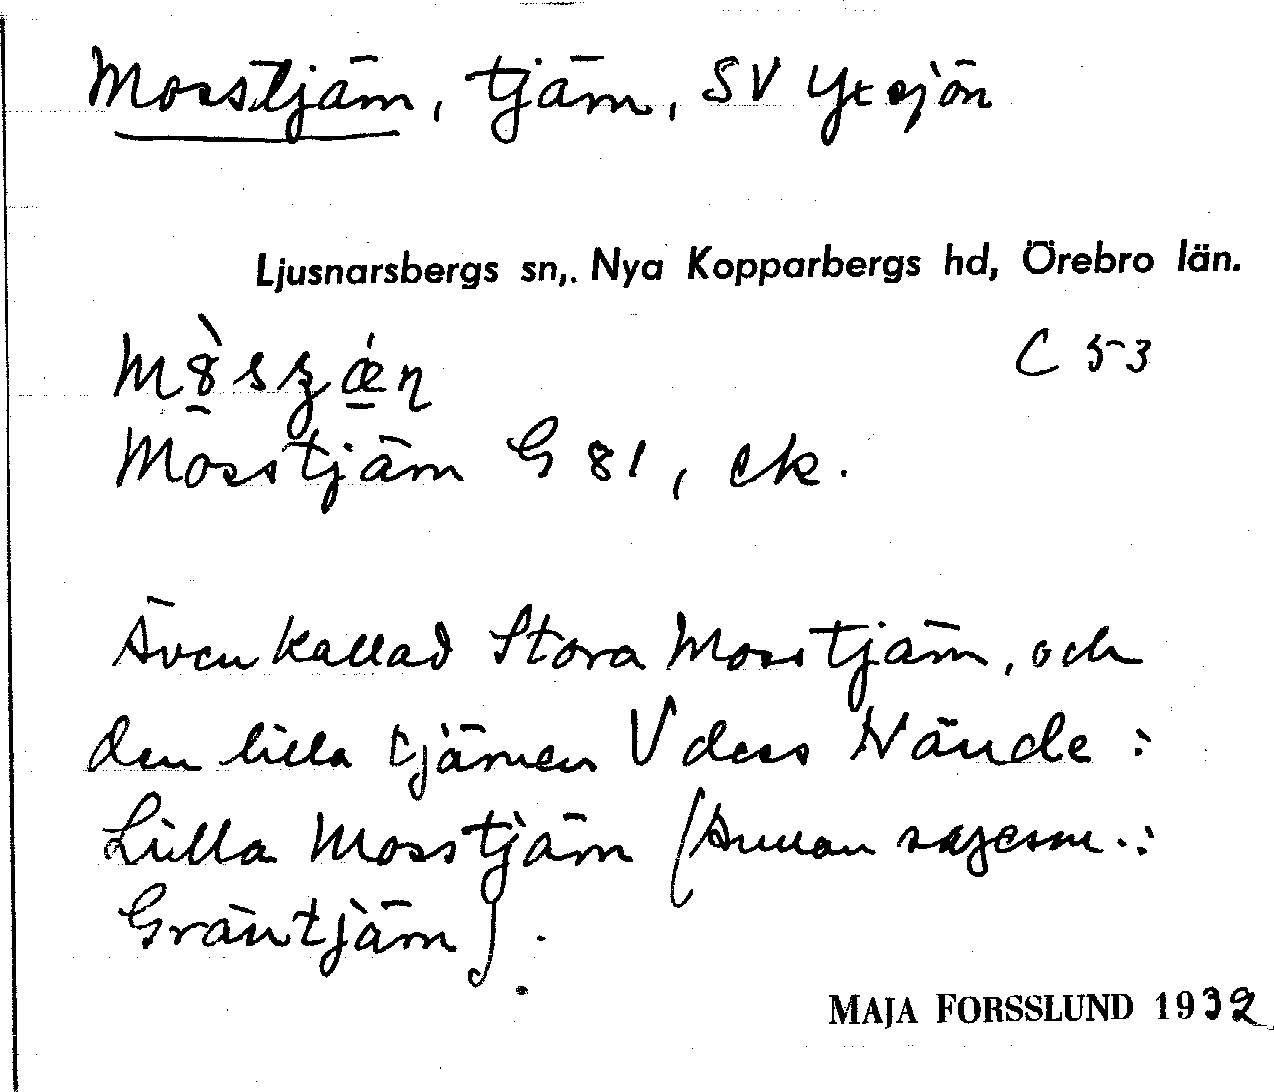 Mosstjärn, tjärn, SV Yxsjön
Ljusnarsbergs sn,. Nya Kopparbergs hd, Örebro län.
C 53
Mosstjärn G 81, ek.
Även kallad Stora Mosstjärn, och
den lilla tjärnen V dess N ände :
Lilla Mosstjärn (Annan sagesm. :
Gräntjärn).
MAJA FORSSLUND 1932